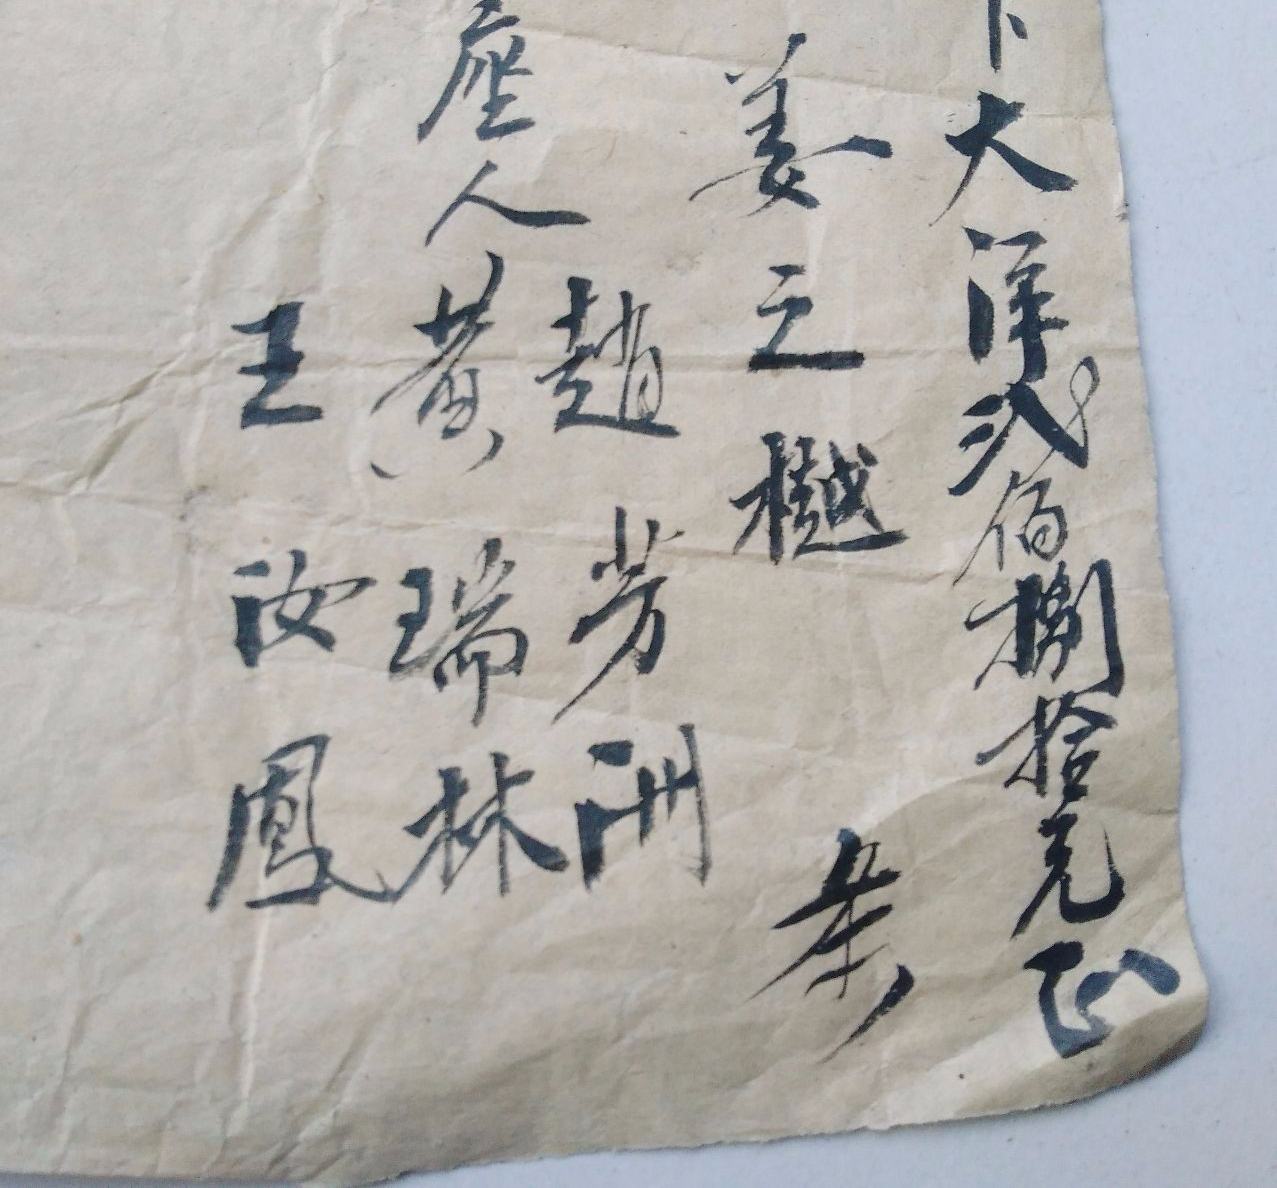 下大洋弍佰捌拾元正
姜之樾 条
座人
趙芳洲
黄瑞林
王汝鳳